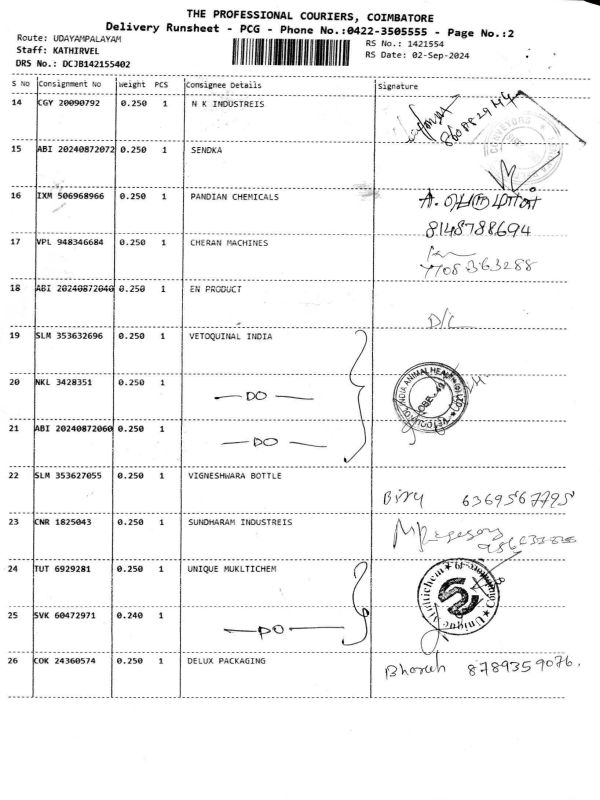 THE PROFESSIONAL COURIERS, COIMBATORE
Delivery Runsheet - PCG - Phone No.:0422-3505555 - Page No.:2
Route: UDAYAMPALAYAM
RS No.: 1421554
Staff: KATHIRVEL
RS Date: 02-Sep-2024
DRS No.: DCJB142155402
S No Consignment No Weight PCS Consignee Details Signature
14 CGY 20090792 0.250 1 N K INDUSTREIS
15 ABI 20240872072 0.250 1 SENDKA
16 IXM 506968966 0.250 1 PANDIAN CHEMICALS
8148788694
17 VPL 948346684 0.250 1 CHERAN MACHINES
7708363288
18 ABI 20240872040 0.250 1 EN PRODUCT
D/C
19 SLM 353632696 0.250 1 VETOQUINAL INDIA
20 NKL 3428351 0.250 1
DO
21 ABI 20240872060 0.250 1
DO
22 SLM 353627055 0.250 1 VIGNESHWARA BOTTLE
6369567795
23 CNR 1825043 0.250 1 SUNDHARAM INDUSTREIS
24 TUT 6929281 0.250 1 UNIQUE MUKLTICHEM
25 SVK 60472971 0.240 1
DO
26 COK 24360574 0.250 1 DELUX PACKAGING
8789359076.